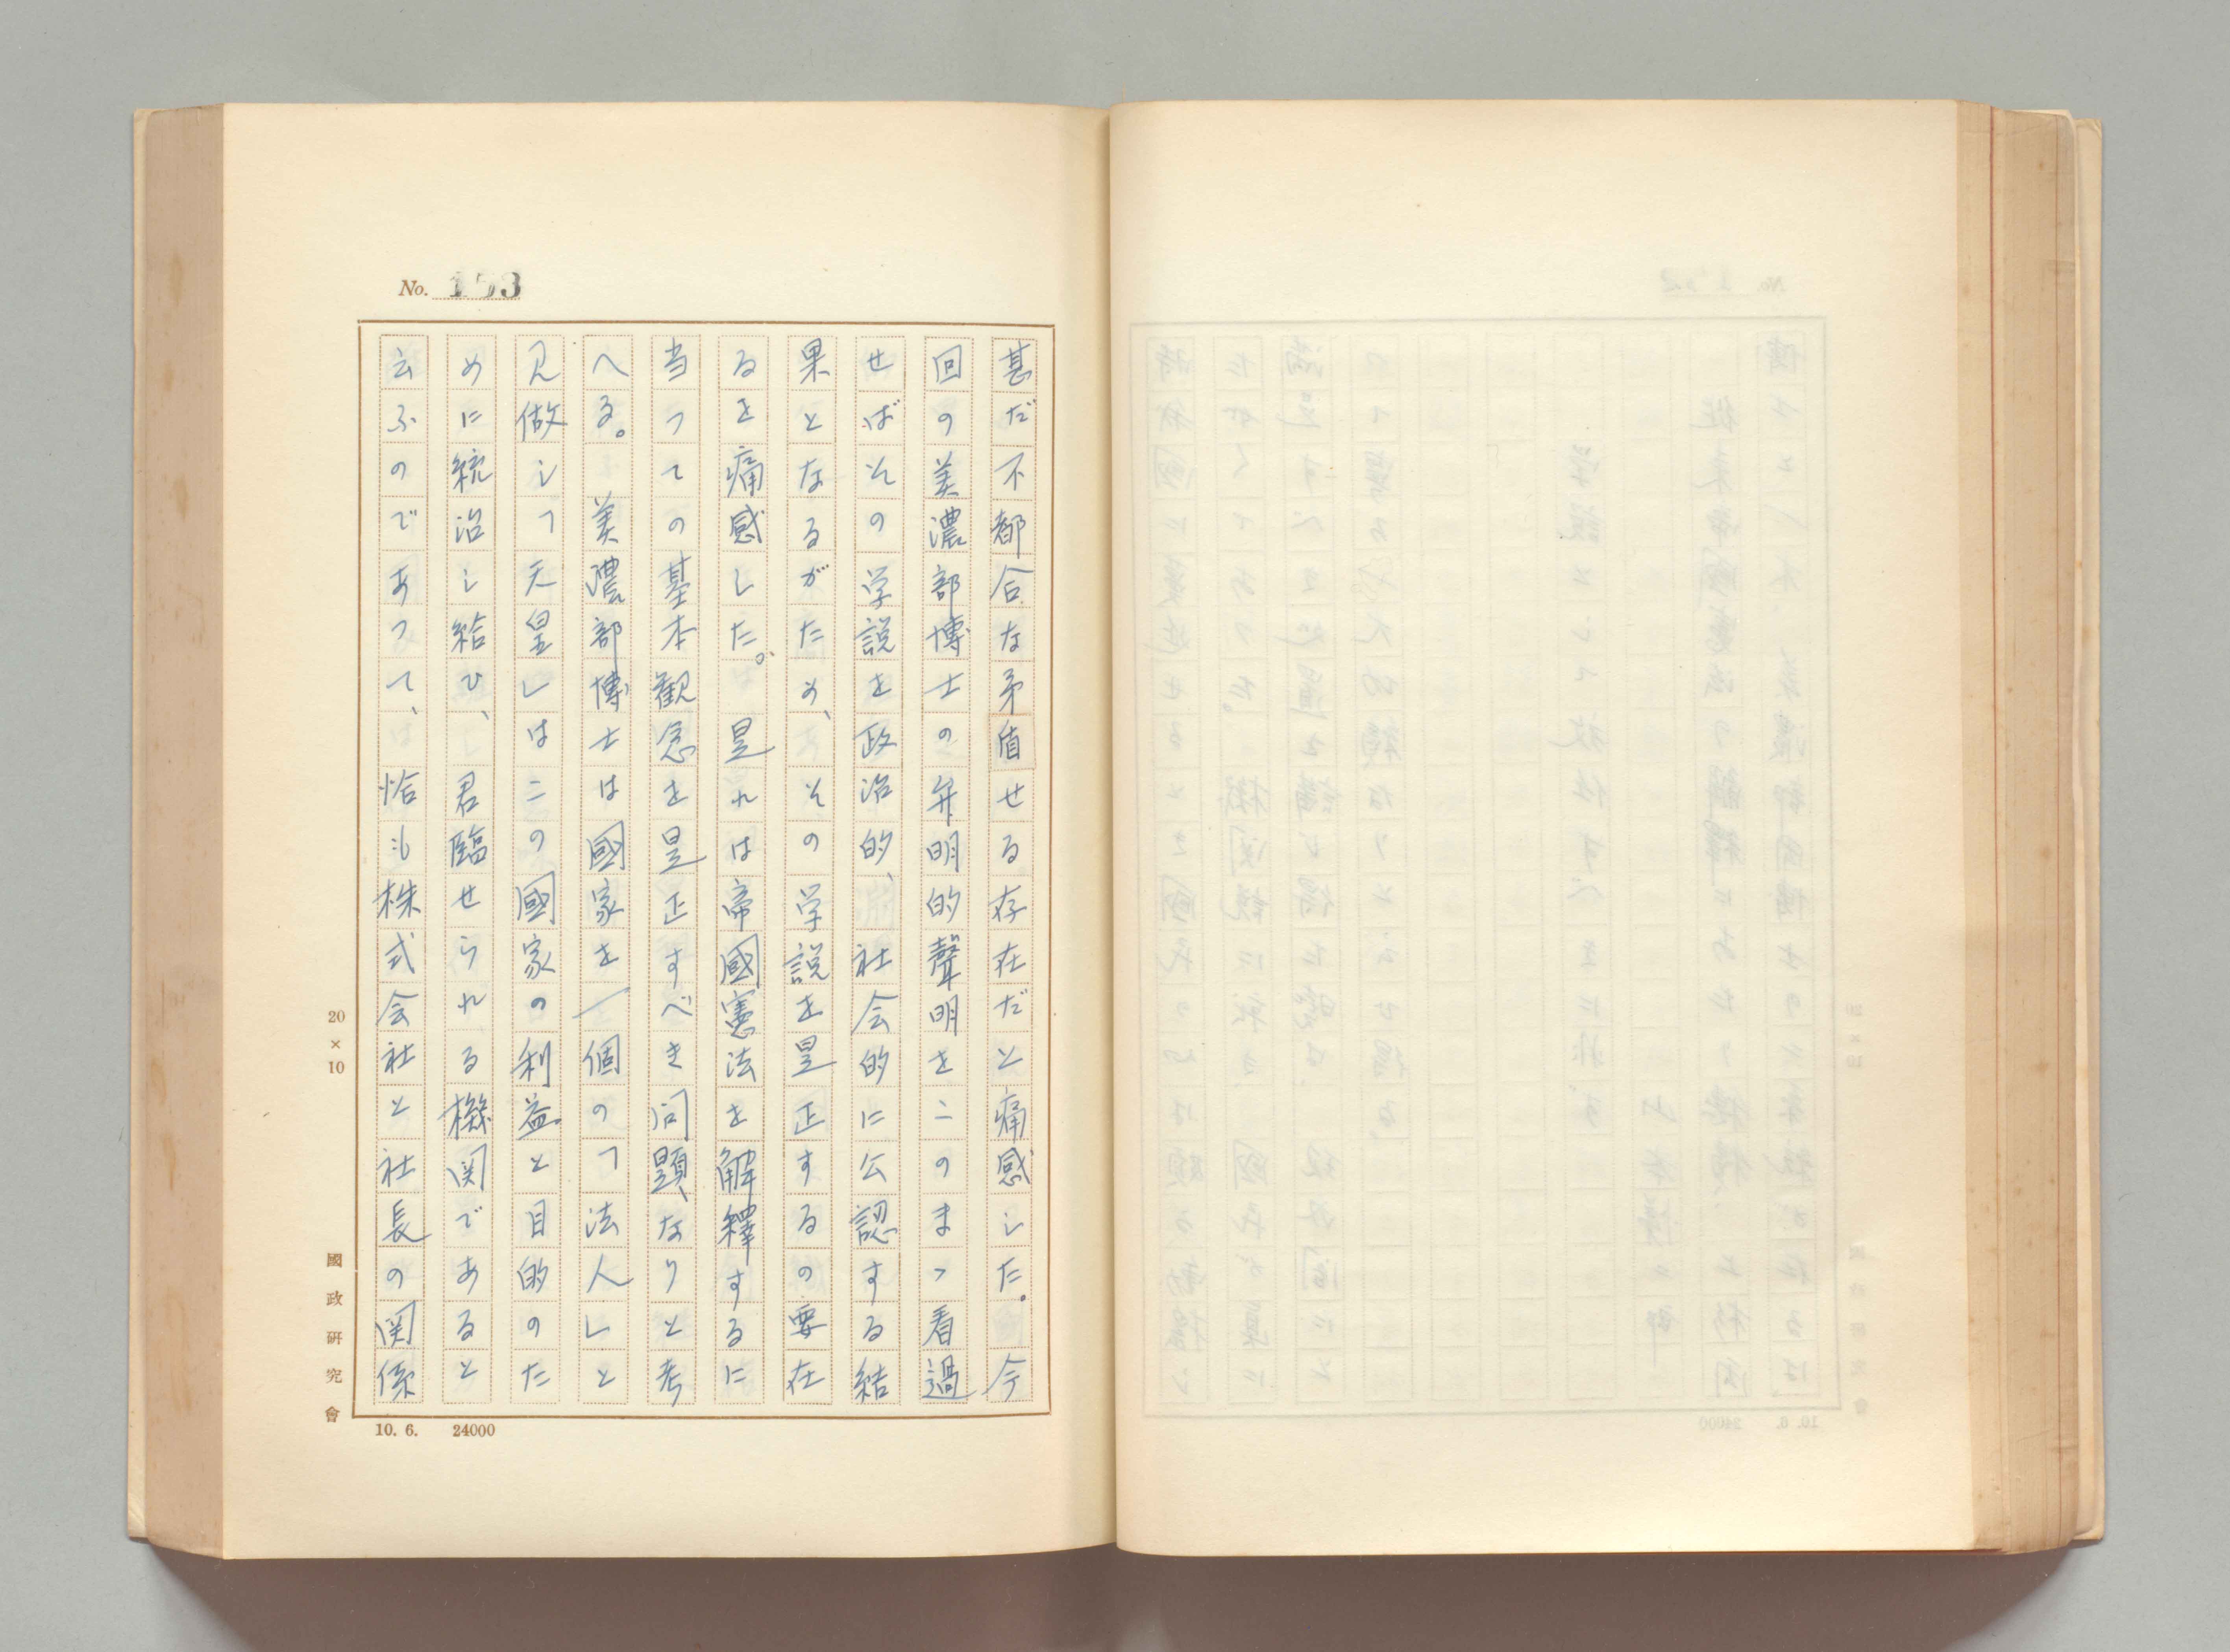 No. 153
甚だ不都合な矛盾せる存在だと痛感した。今
回の美濃部博士の弁明的聲明をこのまゝ看過
せばその学説を政治的、社会的に公認する結
果となるがため、その学説を是正するの要在
るを痛感した。是れは帝國憲法を解釋するに
当つての基本観念を是正すべき問題なりと考
へる。美濃部博士は國家を一個の「法人」と
見做し「天皇」はこの國家の利益と目的のた
めに統治し給ひ、君臨せられる機関であると
云ふのであつて、恰も株式会社と社長の関係
20×10
國政研究會
10. 6. 24000